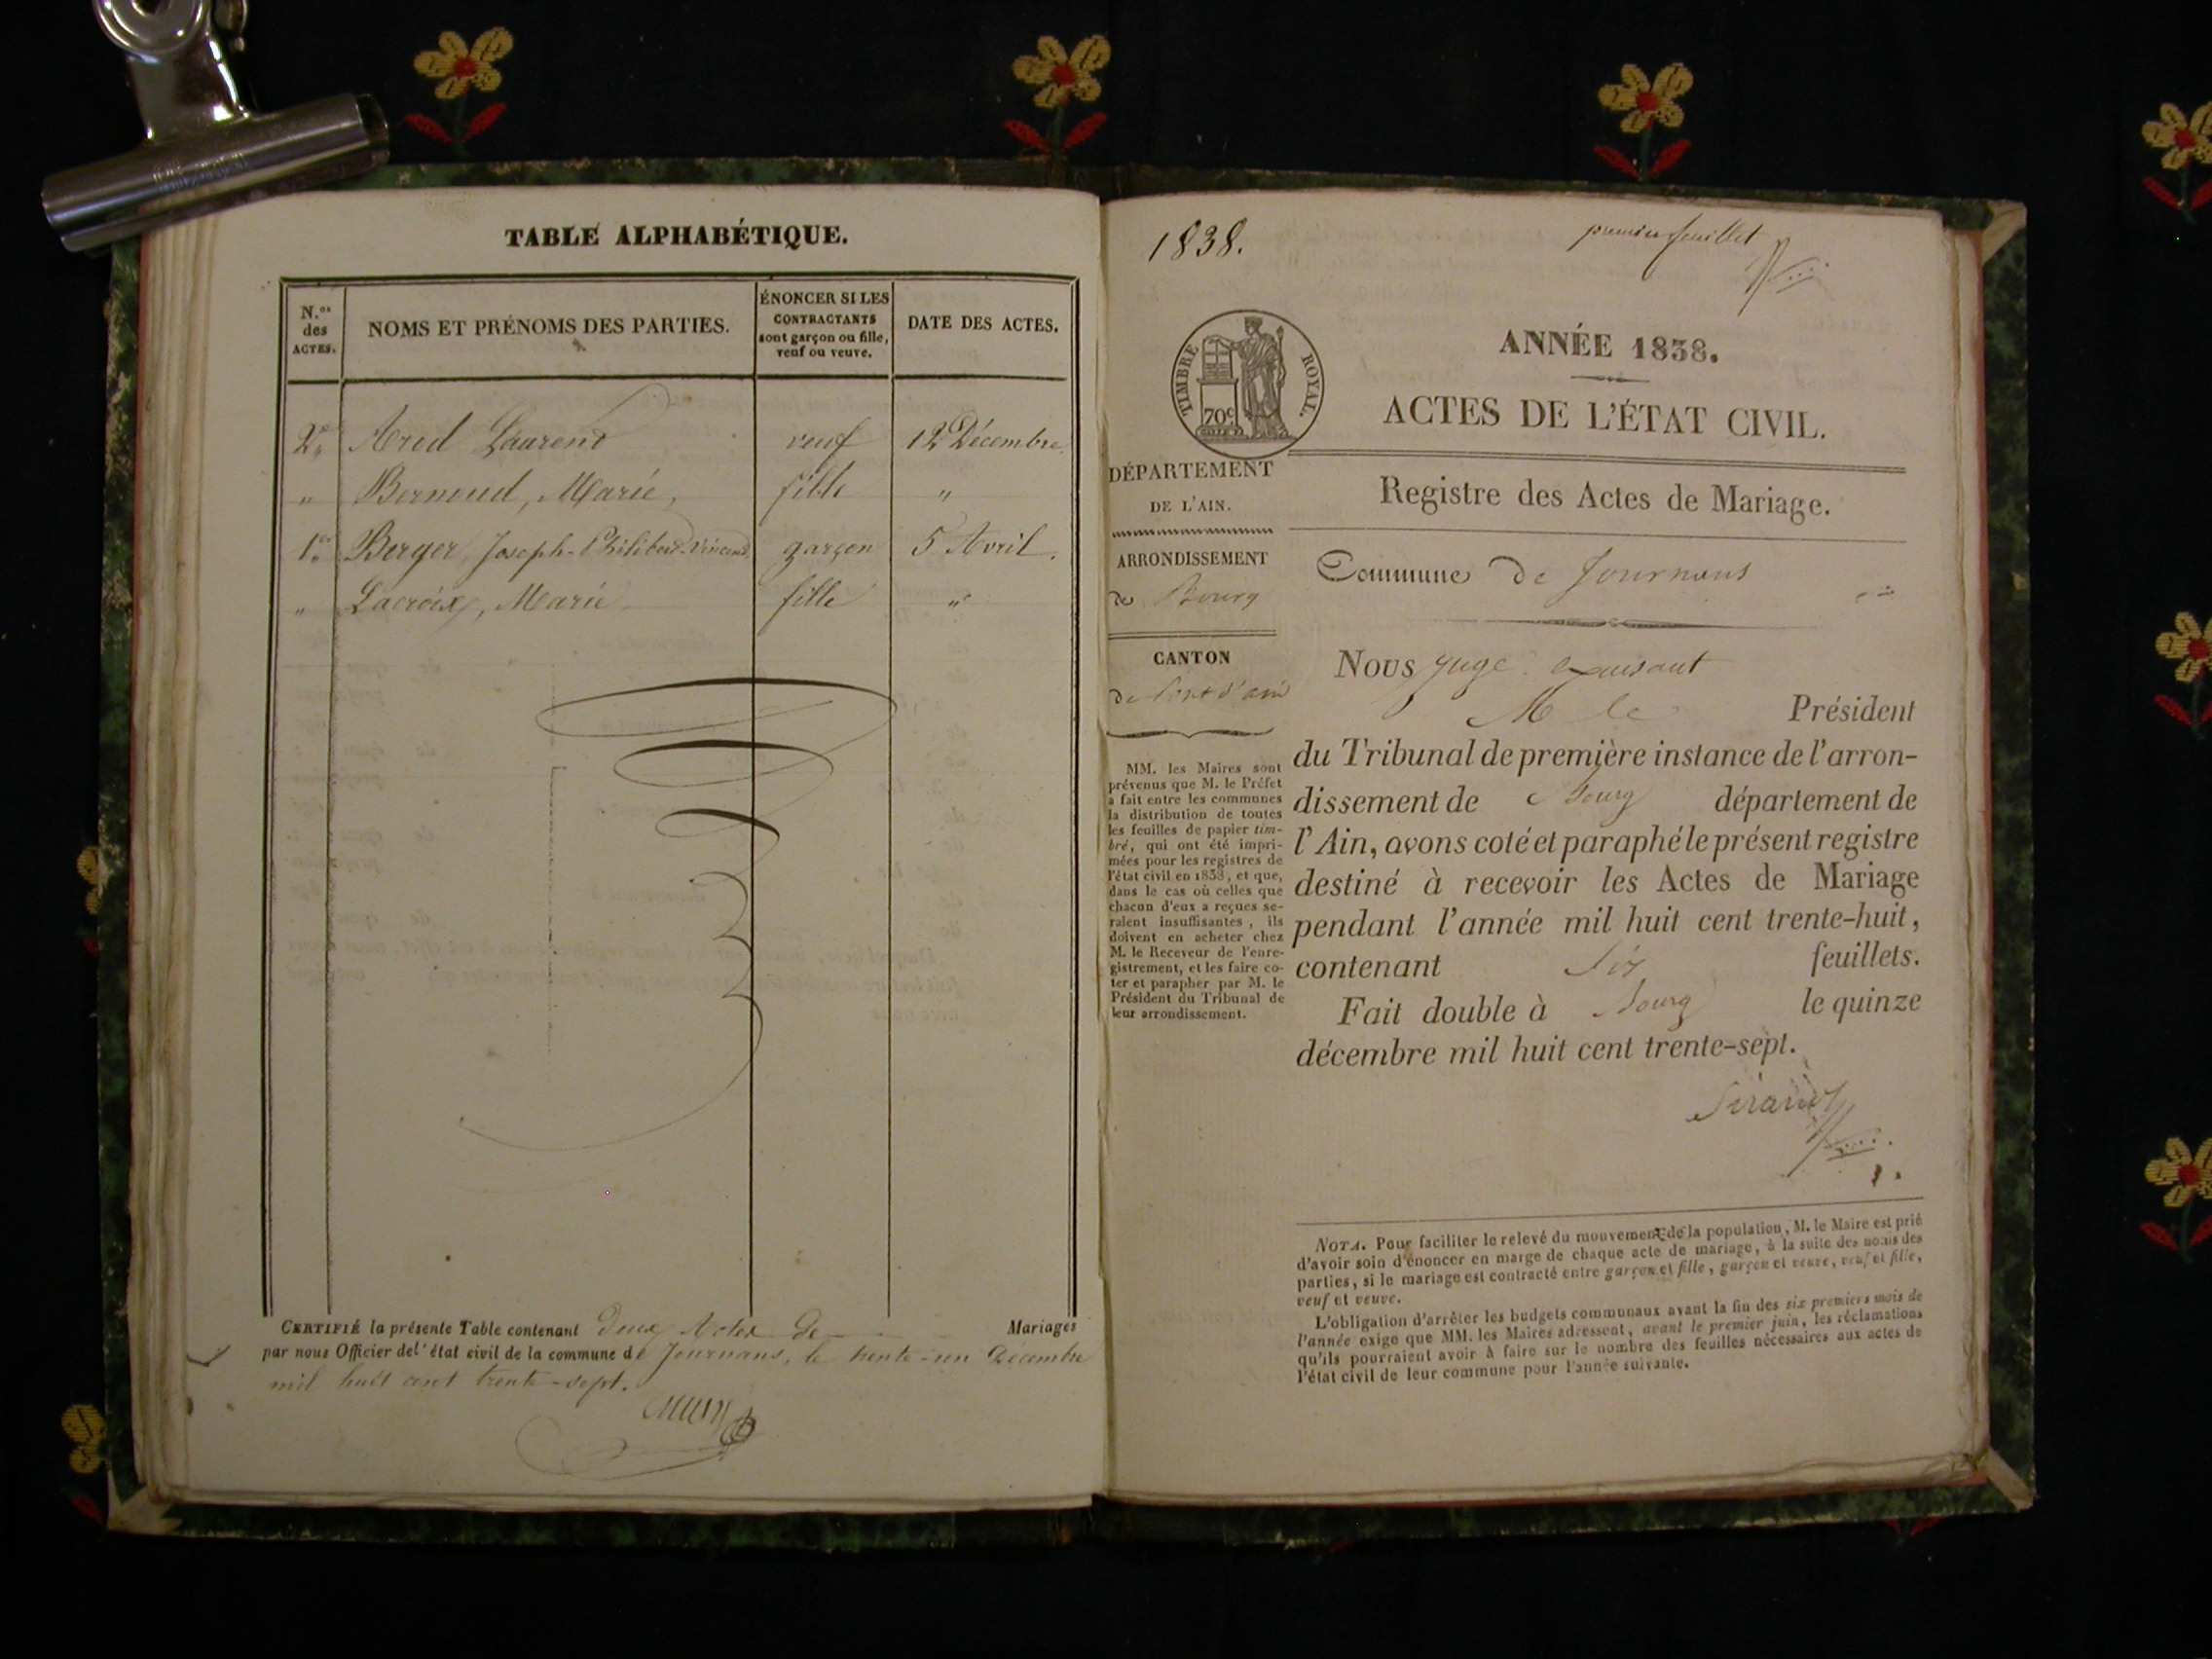 TABLE ALPHABÉTIQUE.
N.os des ACTES.
NOMS ET PRÉNOMS DES PARTIES.
ÉNONCER SI LES CONTRACTANTS sont garçon ou fille, veuf ou veuve.
DATE DES ACTES.
2. Ared Laurent veuf 12 Décembre
" Bernoud, Marie, fille "
1er Berger, Joseph-Philibert-Vincent garçon 5 Avril.
" Lacroix, Marie fille "
CERTIFIÉ la présente Table contenant Deux Actes de Mariages
par nous Officier de l'état civil de la commune de Journans, le trente-un Décembre
mil huit cent trente-sept.
1838.
premier feuillet
TIMBRE ROYAL.
70c
ANNÉE 1838.
ACTES DE L'ÉTAT CIVIL.
DÉPARTEMENT
DE L'AIN.
ARRONDISSEMENT
de Bourg
CANTON
de Pont d'ain
MM. les Maires sont
prévenus que M. le Préfet
a fait entre les communes
la distribution de toutes
les feuilles de papier tim-
bré, qui ont été impri-
mées pour les registres de
l'état civil en 1838, et que,
dans le cas où celles que
chacun d'eux a reçues se-
raient insuffisantes, ils
doivent en acheter chez
M. le Receveur de l'enre-
gistrement, et les faire co-
ter et parapher par M. le
Président du Tribunal de
leur arrondissement.
Registre des Actes de Mariage.
Commune de Journans
NOUS juge
M le Président
du Tribunal de première instance de l'arron-
dissement de Bourg département de
l'Ain, avons coté et paraphé le présent registre
destiné à recevoir les Actes de Mariage
pendant l'année mil huit cent trente-huit,
contenant Six feuillets.
Fait double à Bourg le quinze
décembre mil huit cent trente-sept.
1.
NOTA. Pour faciliter le relevé du mouvement de la population, M. le Maire est prié
d'avoir soin d'énoncer en marge de chaque acte de mariage, à la suite des noms des
parties, si le mariage est contracté entre garçon et fille, garçon et veuve, veuf et fille,
veuf et veuve.
L'obligation d'arrêter les budgets communaux avant la fin des six premiers mois de
l'année exige que MM. les Maires adressent, avant le premier juin, les réclamations
qu'ils pourraient avoir à faire sur le nombre des feuilles nécessaires aux actes de
l'état civil de leur commune pour l'année suivante.